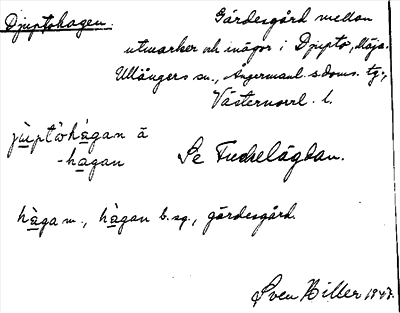 Djuptohagen.
Gärdesgård mellan
utmarker och inägor i Djupto, Höja.
Ullångers sn., Ångermanl. s doms. tg.,
Västernorrl. l.
jùptòhàgan ä
-hagan
Se Fuckelägdan.
hàga m., hàgan b. sg., gärdesgård.
Sven Hiller 1947.